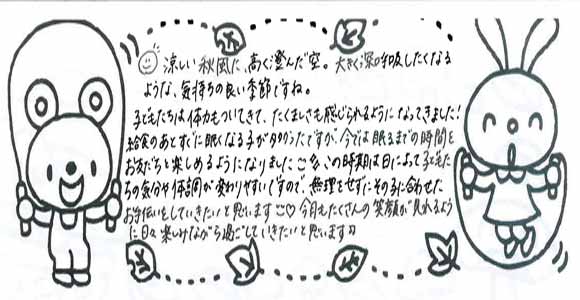 涼しい秋風に、高く澄んだ空。大きく深呼吸したくなる
ような、気持ちの良い季節ですね。
子どもたちは体力もついてきて、たくましさも感じられるようになってきました！
給食のあとすぐに眠くなる子が多かったですが、今では眠るまでの時間を
お友だちと楽しめるようになりました この時期は日によって子どもた
ちの気分や体調が変わりやすいですので、無理をせずにその子に合わせた
お手伝いをしていきたいと思います♡ 今月もたくさんの笑顔が見れるよう
に日々楽しみながら過ごしていきたいと思います♪